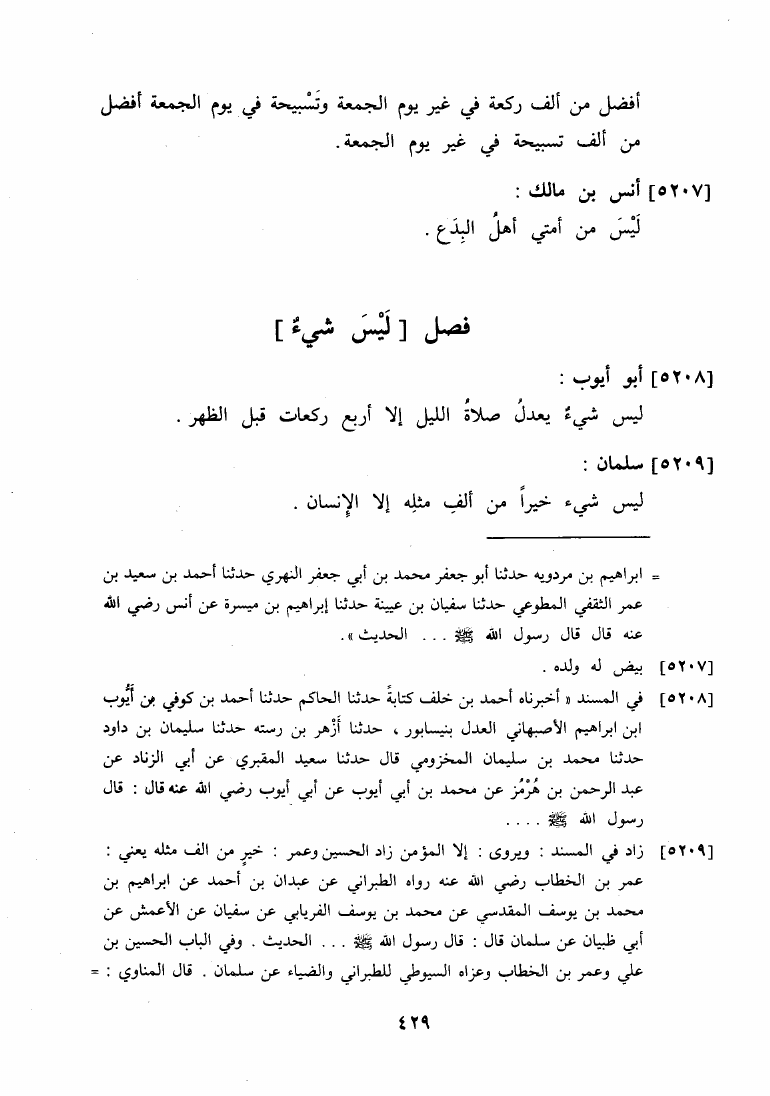 أفضل من ألف ركعة في غير يوم الجمعة وتَسْبيحة في يوم الجمعة أفضل
من ألف تسبيحة في غير يوم الجمعة.
[٥٢٠٧] أنس بن مالك :
لَيْسَ من أمتي أهلُ البِدَع .
فصل [ لَيْسَ شيءٌ ]
[٥٢٠٨] أبو أيوب :
ليس شيءٌ يعدلُ صلاةُ الليل إلا أربع ركعات قبل الظهر .
[٥٢٠٩] سلمان :
ليس شيء خيراً من ألفِ مثلِه إلا الإِنسان .
= ابراهيم بن مردويه حدثنا أبو جعفر محمد بن أبي جعفر النهري حدثنا أحمد بن سعيد بن
عمر الثقفي المطوعي حدثنا سفيان بن عيينة حدثنا إبراهيم بن ميسرة عن أنس رضي الله
عنه قال قال رسول الله ﷺ ... الحديث ».
[٥٢٠٧] بيض له ولده .
[٥٢٠٨] في المسند « أخبرناه أحمد بن خلف كتابةً حدثنا الحاكم حدثنا أحمد بن كوفي بن أَيُّوب
ابن ابراهيم الأصبهاني العدل بنيسابور ، حدثنا أَزْهر بن رسته حدثنا سليمان بن داود
حدثنا محمد بن سليمان المخزومي قال حدثنا سعيد المقبري عن أبي الزناد عن
عبد الرحمن بن هُرْمُز عن محمد بن أبي أيوب عن أبي أيوب رضي الله عنه قال : قال
رسول الله ﷺ ....
[٥٢٠٩] زاد في المسند : ويروى : إلا المؤمن زاد الحسين وعمر : خيرٍ من الف مثله يعني :
عمر بن الخطاب رضي الله عنه رواه الطبراني عن عبدان بن أحمد عن ابراهيم بن
محمد بن يوسف المقدسي عن محمد بن يوسف الفريابي عن سفيان عن الأعمش عن
أبي ظبيان عن سلمان قال : قال رسول الله ﷺ ... الحديث . وفي الباب الحسين بن
علي وعمر بن الخطاب وعزاه السيوطي للطبراني والضياء عن سلمان . قال المناوي : =
٤٢٩